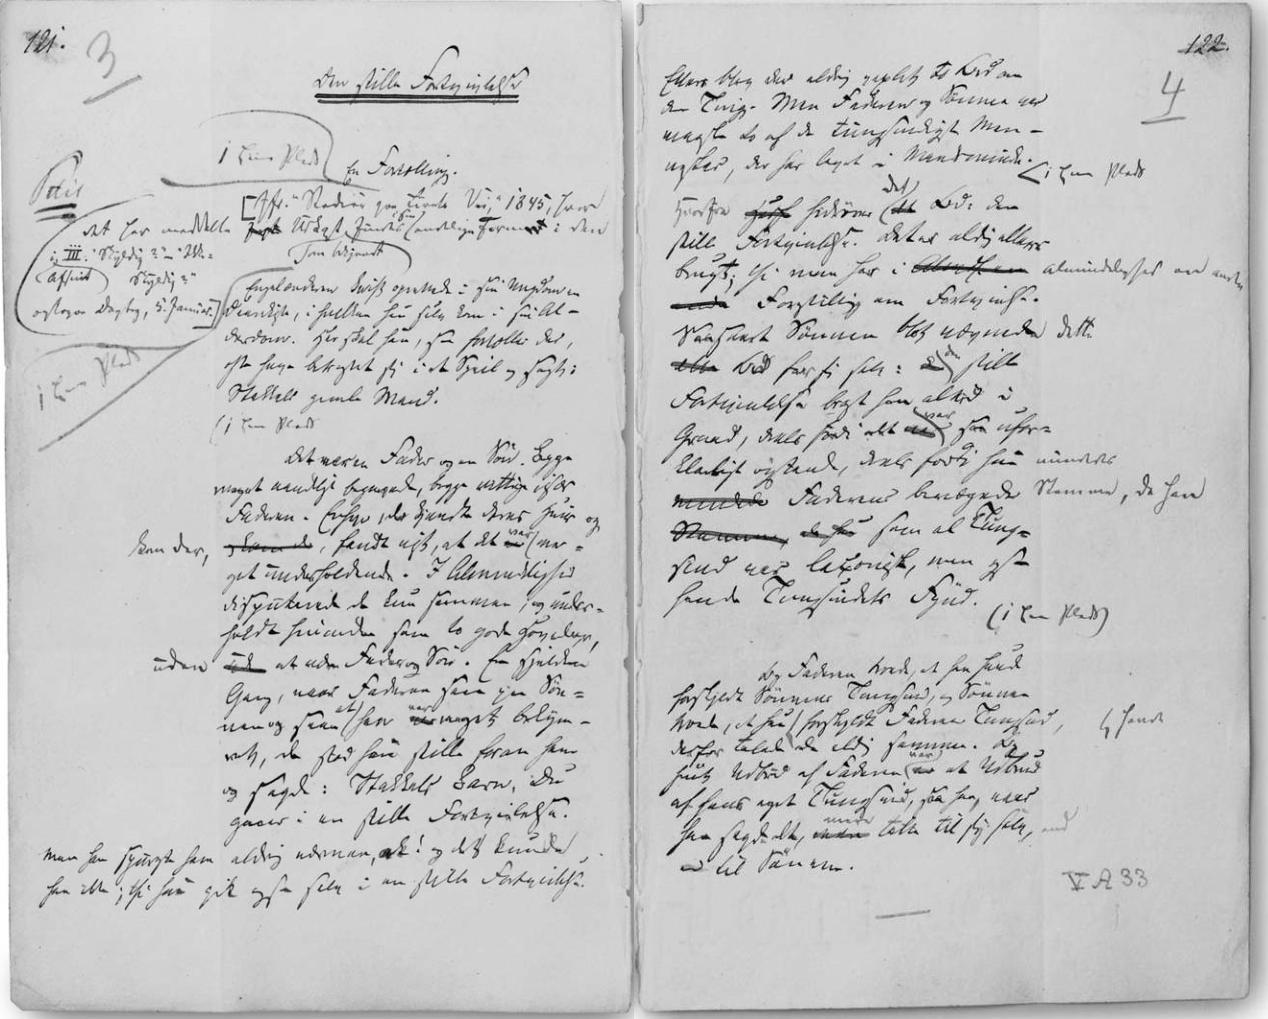 121.
3
Den stille Fortvivlelse
i hans Plads
En Fortælling.
[Jfr. "Stadier paa Livets Vei," 1845, hvor
det har meddelte Udkast findes i sin endelige Form: den
som bekjendt
i III. "Skyldig?" – "Ikke-
Skyldig?"
Afsnit
5. Januar.]
Englænderen Swift oprettede i sin Ungdom en
Daarekiste, i hvilken han selv kom i sin Al-
derdom. Her skal han, saa fortælles der,
ofte have betragtet sig i et Speil og sagt:
Stakkels gamle Mand.
Det var en Fader og en Søn. Begge
meget aandeligt begavede, begge vittige især
Faderen. Enhver, der kjendte deres Huus og
kom der, fandt vist, at det var me-
get underholdende. I Almindelighed
disputerede de kun sammen, og under-
holdt hinanden som to gode Hoveder,
uden at være Fader og Søn. En sjelden
Gang, naar Faderen saae paa Søn-
nen og saae at han var meget bekym-
ret, da stod han stille foran ham
og sagde: Stakkels Barn, Du
gaaer i en stille Fortvivlelse.
Men han spurgte ham aldrig nærmere, ak! og det kunde
han ikke, thi han gik ogsaa selv i en stille Fortvivlelse.
122.
4
Ellers blev der aldrig vexlet to Ord om
den Ting. Men Faderen og Sønnen var
maaskee to af de tungsindigste Men-
nesker, der har levet i Mands Minde.
Herfra hidrører det Ord: den
stille Fortvivlelse. Det er aldrig ellers
brugt; thi man har i almindelighed en anden
Forestilling om Fortvivlelse.
Saasnart Sønnen blot nævnede dette
Ord for sig selv: den stille
Fortvivlelse brast han altid i
Graad, deels fordi det var saa ufor-
klarligt rystende, deels fordi han mindedes
Faderens bevægede Stemme, da han
som al Tung-
sind var laconisk, men ogsaa
havde Tungsindets Fynd.
(i hans Plads)
Og Faderen troede, at han havde
forskyldt Sønnens Tungsind, og Sønnen
troede, at han havde forskyldt Faderens Tungsind,
derfor talede de aldrig sammen. Og
hiint Udbrud af Faderen var et Udbrud
af hans eget Tungsind, saa han, naar
han sagde det, mere talte til sig selv, end
til Sønnen.
V A 33